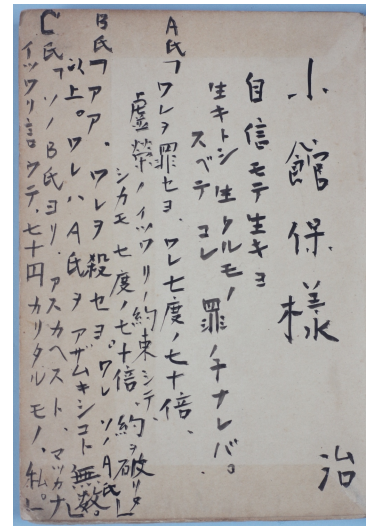 小館保様
治
自信モテ生キヨ
生キトシ生クルモノ
スベテ コレ 罪ノ子ナレバ。
A氏「ワレヲ罪セヨ、ワレ七度ノ七十倍、
虚榮ノイツワリノ約束シテ、
シカモ七度ノ七十倍、約ヲ破リタ」
B氏「アア、ワレヲ殺セヨ。ワレソノA氏」
以上。ワレハA氏ヲアザムキシコト無数。」
C氏「ソノB氏ヨリ、アスカヘスト、マッカナ
イツワリ言ウテ、七十円カリタルモノ、私。」